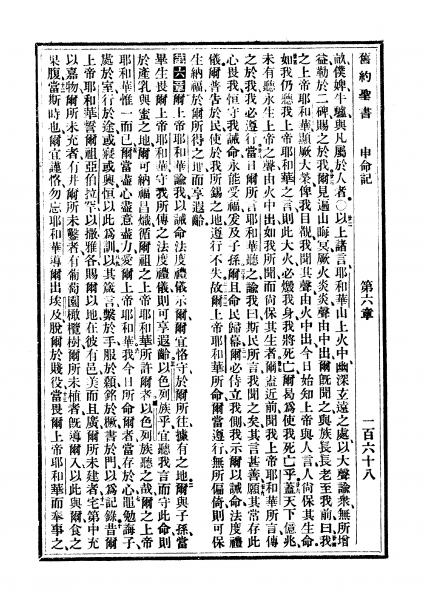 舊約聖書　申命記　第六章　一百六十八
畝僕婢牛驢與凡屬於人者○以上諸言耶和華山上火中幽深玄遠之處以大聲諭衆無所增
益勒於二碑賜之於我爾見遍山晦冥厥火炎炎聲由中出爾旣聞之與族長長老至我前曰我
之上帝耶和華顯厥大榮俾我目覩我聞其聲由火中出今日始知上帝與人言人尚保其生命
如我仍聽我上帝耶和華之言則此大火必燬我身我將死亡爾曷爲使我死亡乎蓋天下億兆
未有聽永生上帝之聲由火中出如我所聞而尚保其生者爾盍近前聞我上帝耶和華所言傳
之於我我必遵行當日爾所言耶和華聽之諭我曰斯民所言我聞之矣其言甚善願其常存此
心畏我恒守我誡命永能受福爰及子孫爾且命民歸幕爾必侍立我側我示爾以誡命法度禮
儀爾普告於民使於我所錫之地遵行不失故爾上帝耶和華所命爾當遵行無所偏倚則可保
生納福於爾所得之地而享遐齡
第六章爾上帝耶和華諭我以誡命法度禮儀示爾爾宜恪守於爾所往據有之地爾與子孫當
畢生畏爾上帝耶和華守我所傳之法度禮儀則可享遐齡以色列族乎宜聽我言而守此命則
於產乳與蜜之地爾可納福昌熾循爾祖之上帝耶和華所許爾者以色列族聽之哉爾之上帝
耶和華惟一而已爾當盡心盡意盡力愛爾上帝耶和華我今日所命爾者當存於心黽勉誨子
處於室行於途或寢或興恒以此爲訓以其箴言繫於手服於顙銘於橛書於門以爲記錄昔爾
上帝耶和華誓爾祖亞伯拉罕以撒雅各賜爾以地在彼有邑美而且廣爾所未建者宅第中充
以嘉物爾所未充者有井爾所未鑿者有葡萄園橄欖樹爾所未植者旣導爾入以此與爾食之
果腹當斯時也爾宜謹恪勿忘耶和華導爾出埃及脫於賤役當畏爾上帝耶和華而奉事之